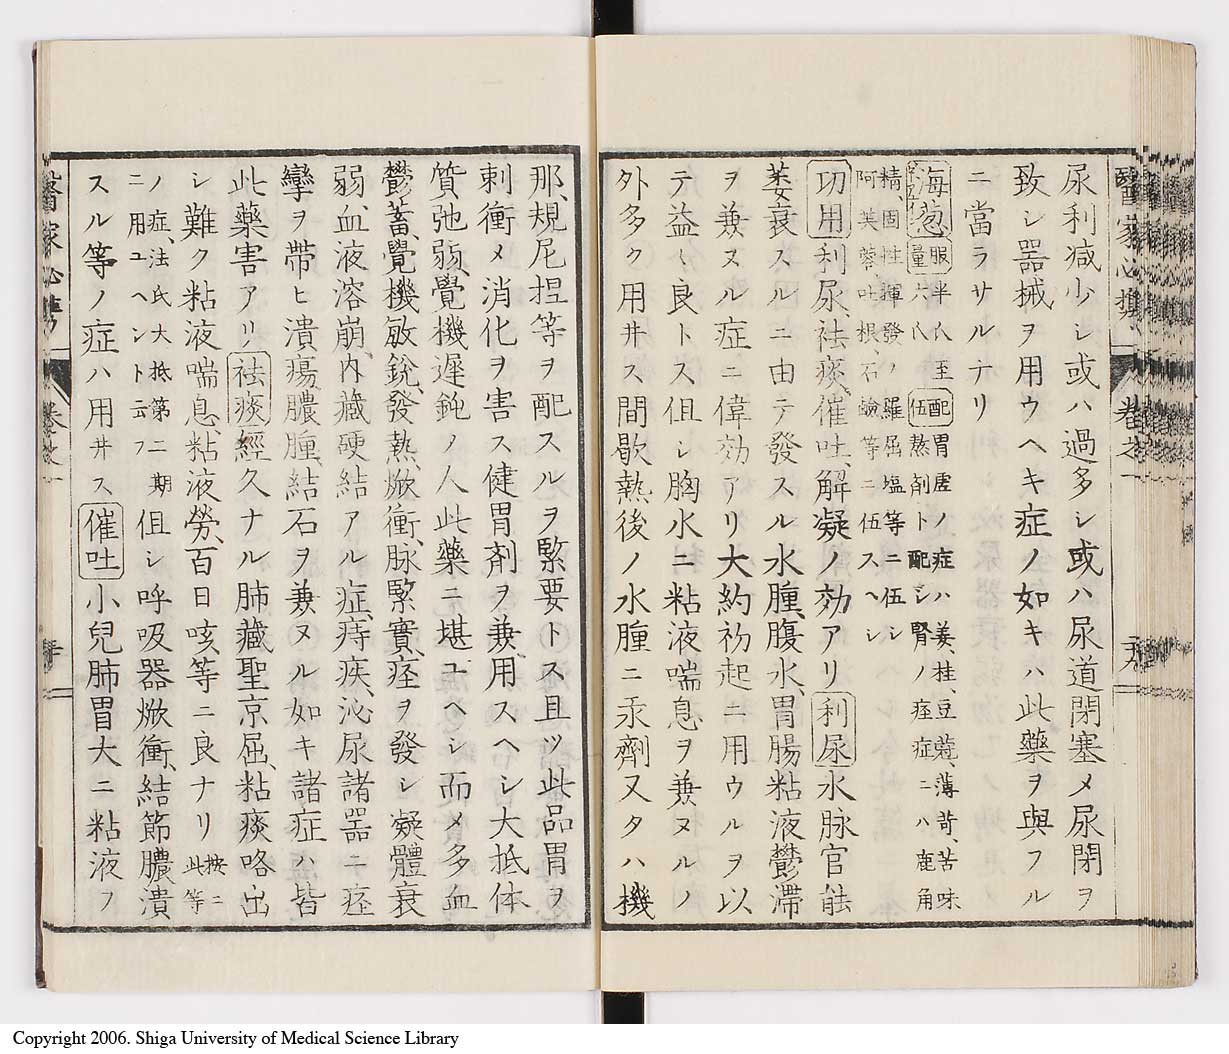 尿利減少シ或ハ過多シ或ハ尿道閉塞メ尿閉ヲ
致シ器械ヲ用ウヘキ症ノ如キハ此藥ヲ與フル
ニ當ラサルナリ
海葱
服半氏至
量六氏
配胃虚ノ症ハ姜、桂、豆蔲、薄荷、苦味
伍熱剤ト配シ腎ノ痙症ニハ鹿角
精、固性揮發ノ羅屈塩等ニ伍シ
阿芙蓉、吐根、石鹼等ニ伍スヘシ
功用利尿、祛痰、催吐、解凝ノ効アリ利尿水脉官能
萎衰スルニ由テ發スル水腫、腹水、胃腸粘液鬱滞
ヲ兼ヌル症ニ偉効アリ大約初起ニ用ウルヲ以
テ益良トス但シ胸水ニ粘液喘息ヲ兼ヌルノ
外多ク用井ス間歇熱後ノ水腫ニ汞劑又タハ機
那、規尼捏等ヲ配スルヲ緊要トス且ツ此品胃ヲ
刺衝メ消化ヲ害ス健胃剤ヲ兼、用スヘシ大抵体
質弛弱、覺機遲鈍ノ人此藥ニ堪ユヘシ而メ多血
鬱蓄、覺機敏銳、發熱、焮衝、脉緊實、痙ヲ發シ凝體衰
弱、血液溶崩、内臓硬結アル症、痔疾、沁尿諸器ニ痙
攣ヲ帶ヒ潰瘍、膿腫、結石ヲ兼ヌル如キ諸症ハ皆
此藥害アリ祛痰經久ナル肺臓聖京屈、粘痰咯出
シ難ク粘液喘息、粘液勞、百日咳、等ニ良ナリ
按ニ
此等
ノ症、法氏大抵第二期
ニ用ユヘシト云フ
但シ呼吸器焮衝、結節膿潰
スル等ノ症ハ用井ス催吐小兒肺胃大ニ粘液フ
醫家必携
卷之一
醫家必携